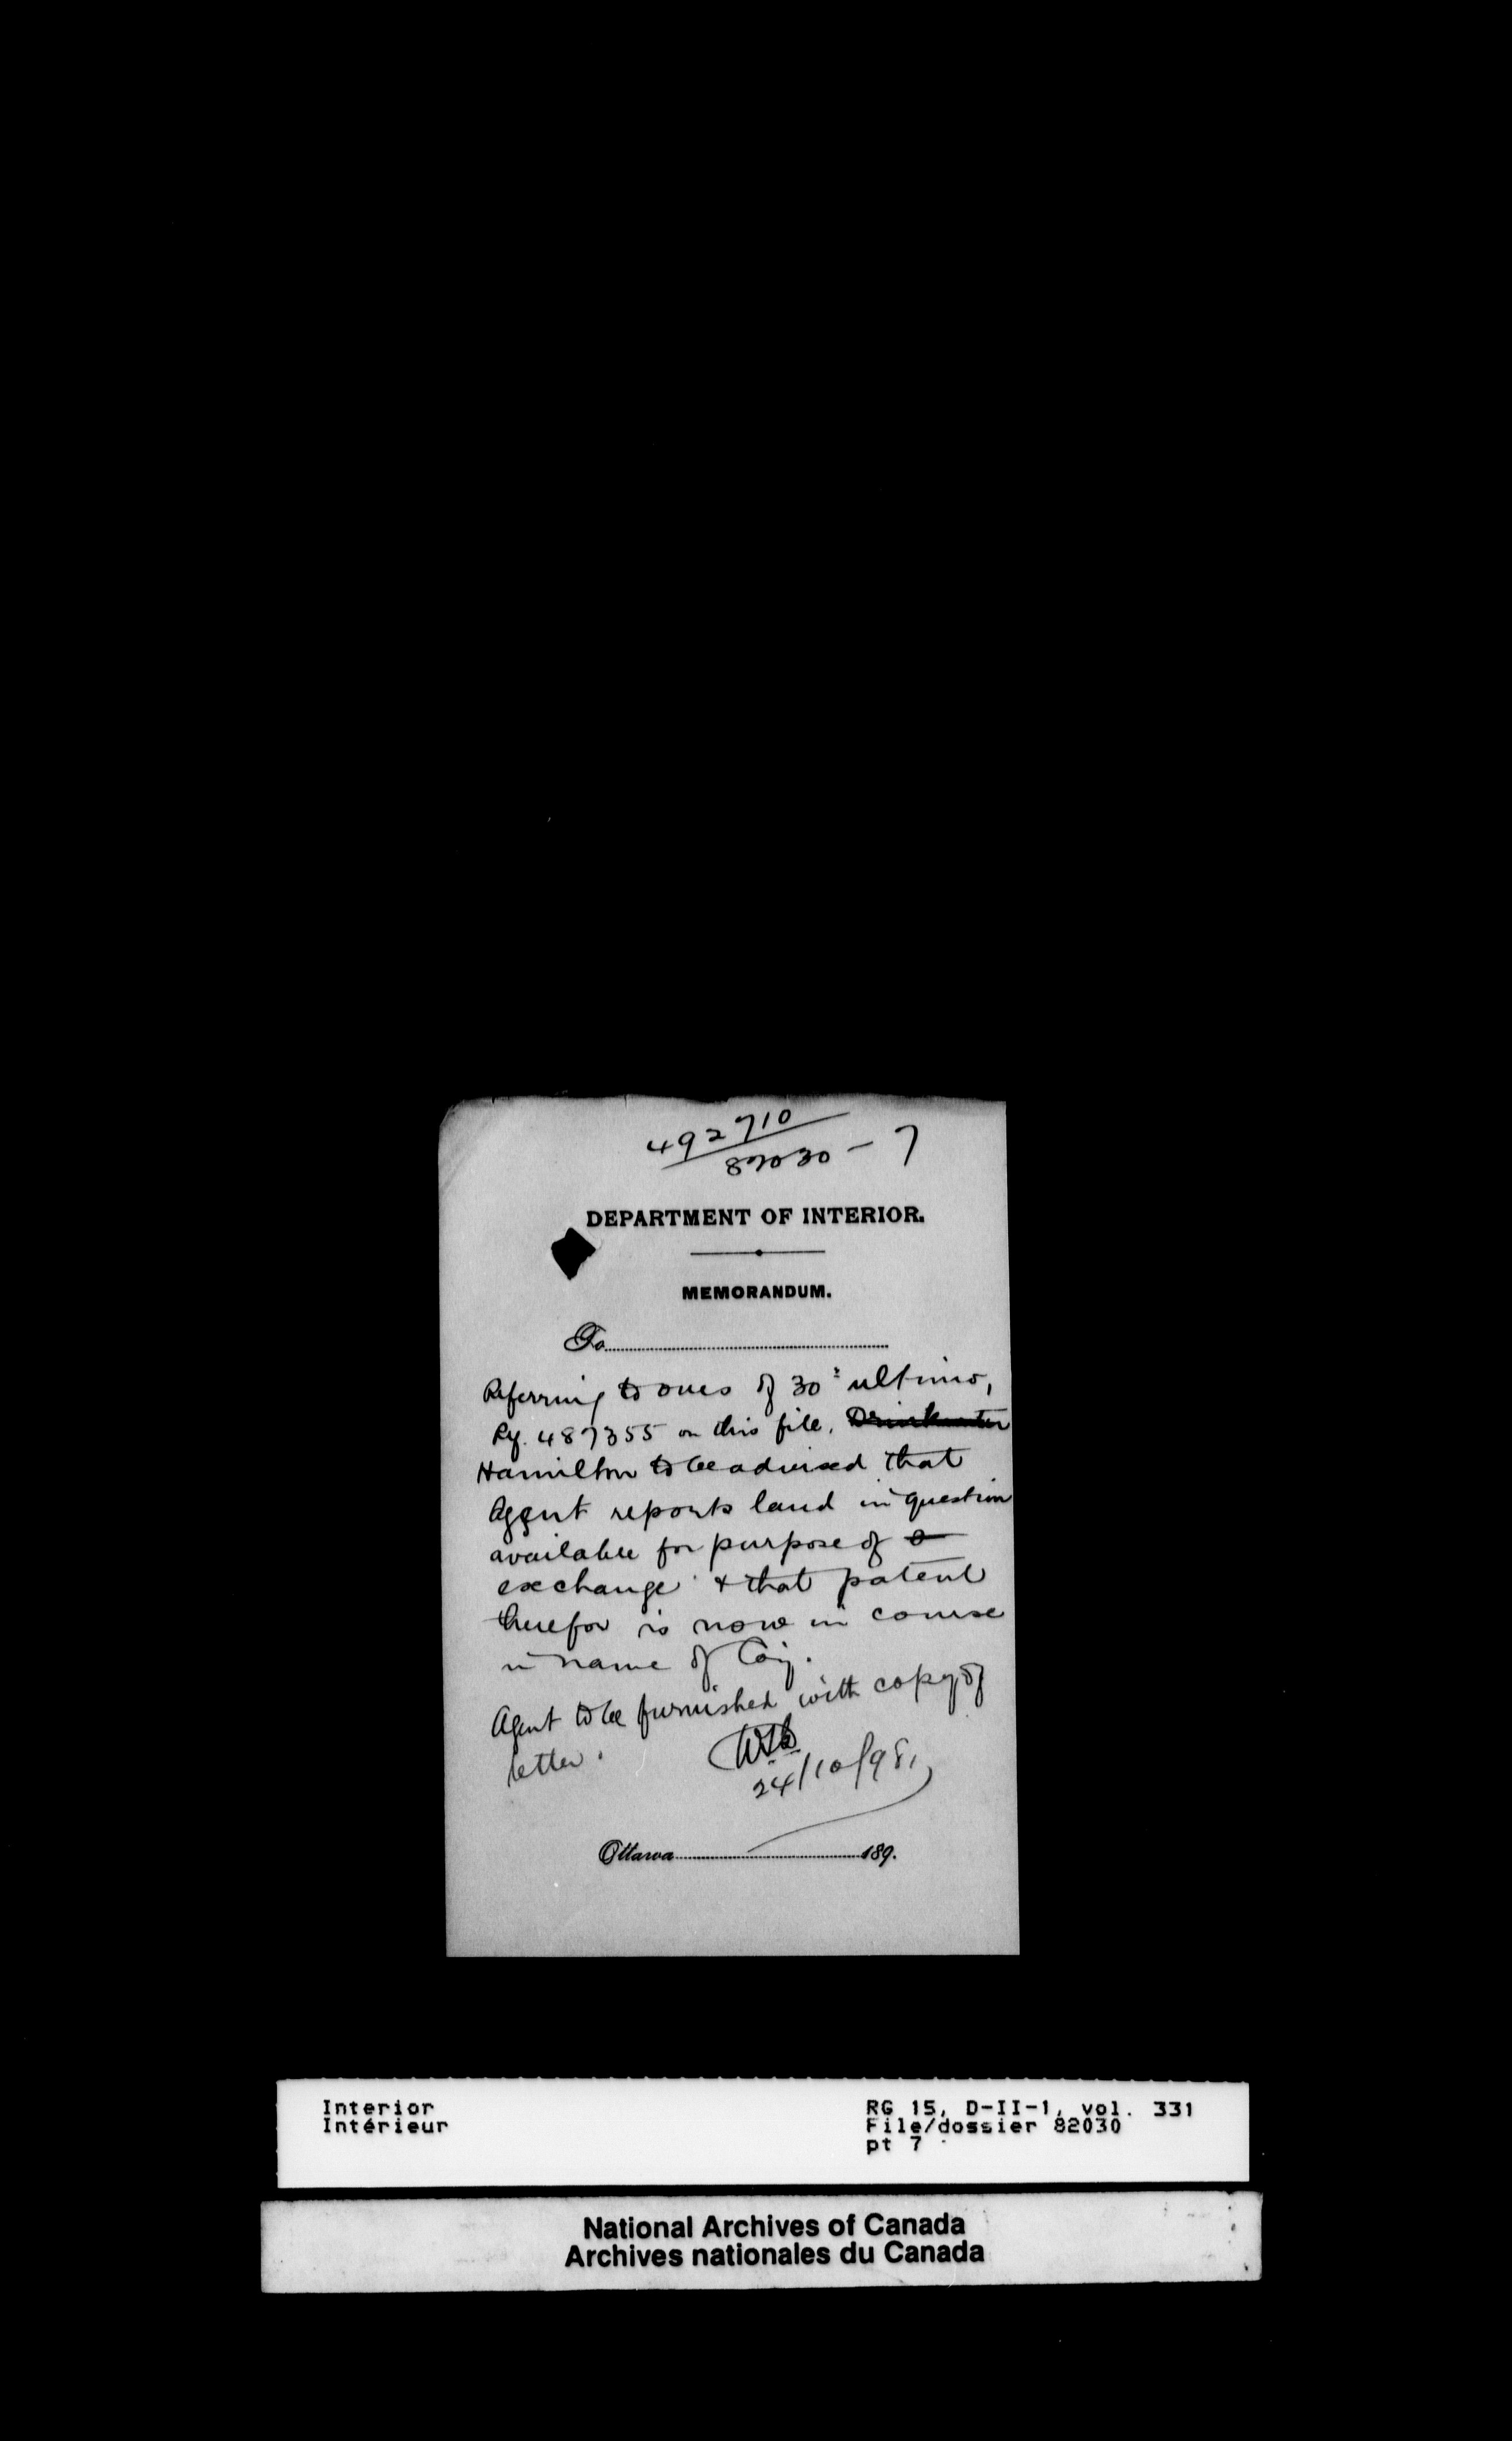 492710
82030 - 7
DEPARTMENT OF INTERIOR.
MEMORANDUM.
To
Referring to ours of 30th ultimo,
Ry. 487355 on this file. Drinkwater
Hamilton to be advised that
Agent reports land in question
available for purpose of a
exchange & that patent
therefor is now in course
in name of Coy.
Agent to be furnished with copy of
letter.
24/10/98
Ottawa 189.
Interior
Intérieur
RG 15, D-II-1, vol. 331
File/dossier 82030
pt 7
National Archives of Canada
Archives nationales du Canada